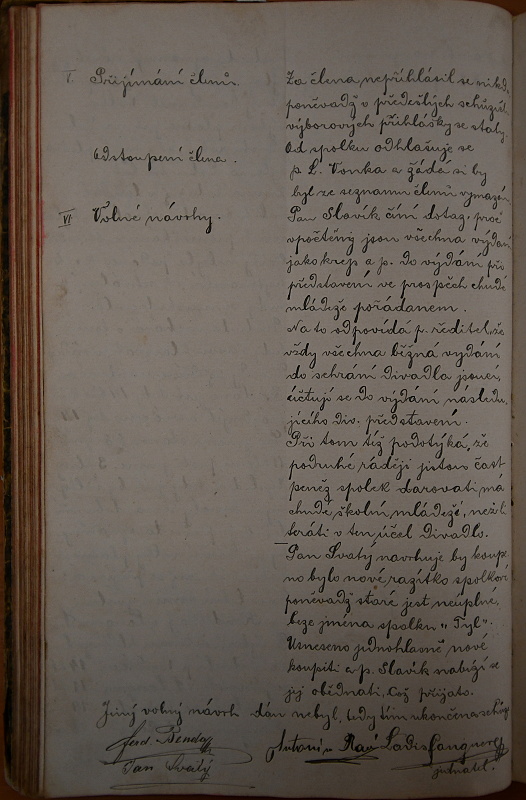 V. Přijímání členů.
Za člena nepřihlásil se nikdo
poněvadž v předešlých schůzích
výborových přihlášky se staly.
Odstoupení člena.
Od spolku odhlašuje se
p. L. Vonka a žádá si by
byl ze seznamu členů vymazán.
VI Volné návrhy.
Pan Slavík činí dotaz, proč
vpočtěny jsou všechna vydání
jako krep a p. do vydání při
představení ve prospěch chudé
mládeže pořádaném.
Na to odpovídá p. ředitel, že
vždy všechna běžná vydání
do sehrání divadla jsoucí,
účtují se do vydání následu-
jícího div. představení.
Při tom též podotýká, že
podruhé raději jistou část
peněz spolek darovati má
chudé školní mládeži, nežli
hráti v ten účel divadlo.
Pan Svatý navrhuje by koupe-
no bylo nové razítko spolkové
poněvadž staré jest neúplné,
beze jména spolku "Tyl".
Usneseno jednohlasně nové
koupiti a p. Slavík nabízí se
jej obědnati, což přijato.
Jiný volný návrh dán nebyl, tedy tím ukončena schůze
Ferd. Benda
Antonín Ladis. Langner
Jan Svatý
jednatel.